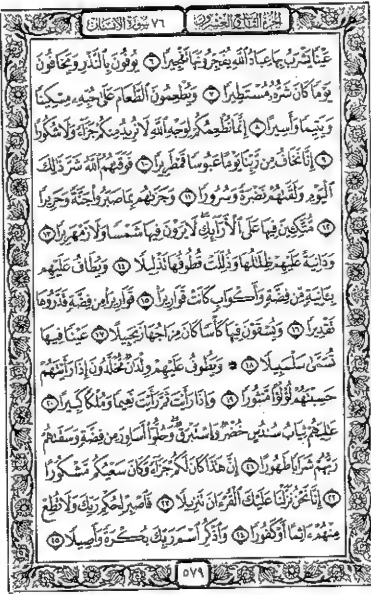 الجزء التاسع والعشرون ٧٦ سورة الإنسان
عينا يشرب بها عباد الله يفجرونها تفجيرا ٦ يوفون بالنذر ويخافون
يوما كان شره مستطيرا ٧ ويطعمون الطعام على حبه مسكينا
ويتيما وأسيرا ٨ إنما نطعمكم لوجه الله لا نريد منكم جزاء ولا شكورا
٩ إنا نخاف من ربنا يوما عبوسا قمطريرا ١٠ فوقىهم الله شر ذلك
اليوم ولقىهم نضرة وسرورا ١١ وجزىهم بما صبروا جنة وحريرا
١٢ متكئين فيها على الأرائك لا يرون فيها شمسا ولا زمهريرا ١٣
ودانية عليهم ظلالها وذللت قطوفها تذليلا ١٤ ويطاف عليهم
بآنية من فضة وأكواب كانت قواريرا ١٥ قواريرا من فضة قدروها
تقديرا ١٦ ويسقون فيها كأسا كان مزاجها زنجبيلا ١٧ عينا فيها
تسمى سلسبيلا ١٨ ۞ ويطوف عليهم ولدان مخلدون إذا رأيتهم
حسبتهم لؤلؤا منثورا ١٩ وإذا رأيت ثم رأيت نعيما وملكا كبيرا ٢٠
عاليهم ثياب سندس خضر وإستبرق وحلوا أساور من فضة وسقىهم
ربهم شرابا طهورا ٢١ إن هذا كان لكم جزاء وكان سعيكم مشكورا
٢٢ إنا نحن نزلنا عليك القرءان تنزيلا ٢٣ فاصبر لحكم ربك ولا تطع
منهم ءاثما أو كفورا ٢٤ واذكر اسم ربك بكرة وأصيلا ٢٥
٥٧٩